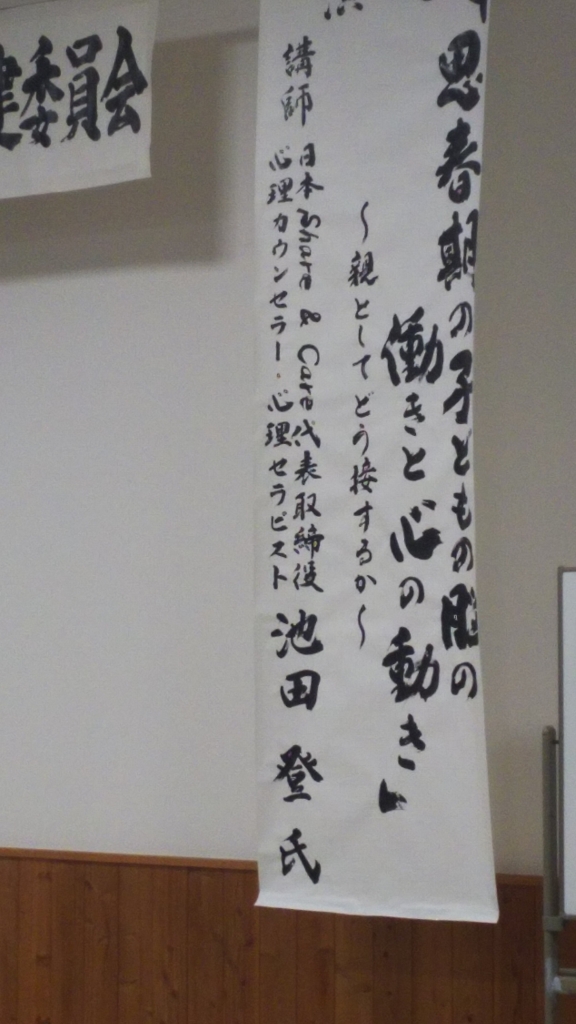 建委員会
演
「思春期の子どもの脳の
働きと心の動き」
〜親としてどう接するか〜
講師 日本Share & Care代表取締役
心理カウンセラー・心理セラピスト
池田 登 氏